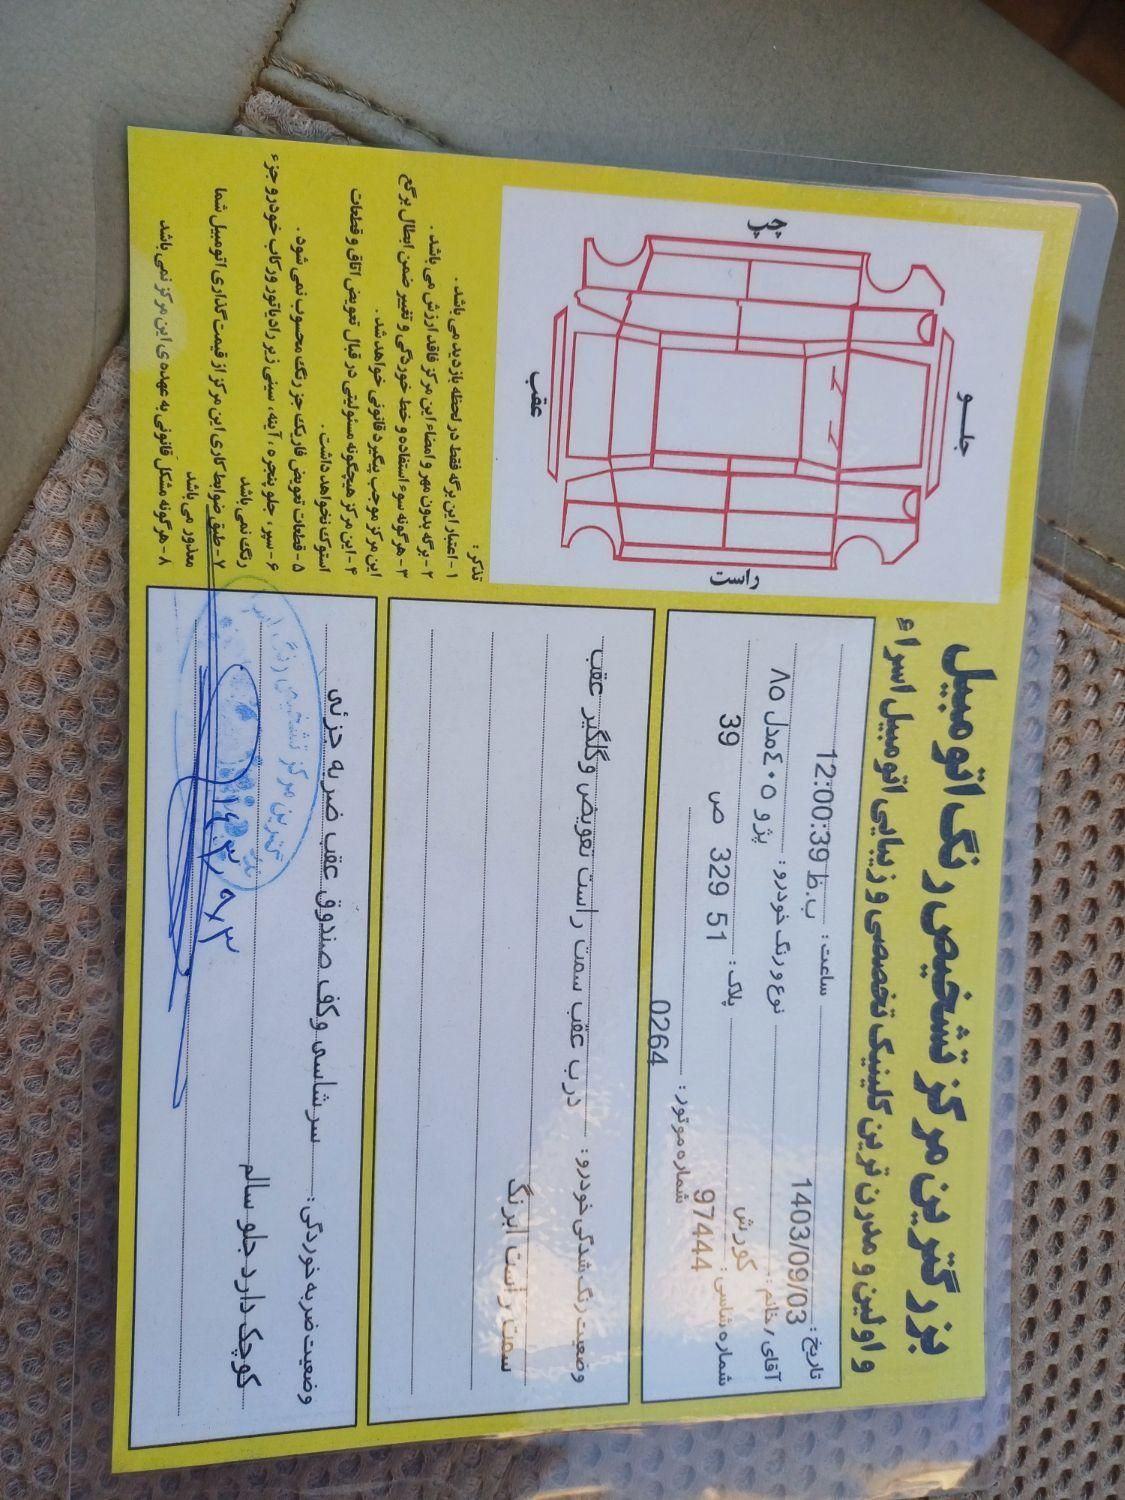 بزرگترین مرکز تشخیص رنگ اتومبیل
و اولین و مدرن ترین کلینیک تخصصی و زیبایی اتومبیل اسراء
تاریخ : 1403/09/03 ساعت : 12:00:39 ب.ظ
آقای / خانم : کورش نوع و رنگ خودرو : پژو ٤٠٥ مدل ٨٥
شماره شاسی : 97444 پلاک : 51 329 ص 39
شماره موتور : 0264
وضعیت رنگ شدگی خودرو : درب عقب سمت راست تعویض وگلگیر عقب
سمت راست ابرنگ
وضعیت ضربه خوردگی : سرشاسی وکف صندوق عقب ضربه جزئی
کوچک دارد جلو سالم
۱۴۰۳٫۹٫۳
چپ
جلــو
عقب
راست
تذکر :
۱- اعتبار این برگه فقط در لحظه بازدید می باشد .
۲- برگه بدون مهر و امضاء این مرکز فاقد ارزش می باشد .
۳- هرگونه سوء استفاده و خط خوردگی و تغییر ضمن ابطال برگع
این مرکز موجب پیگیرد قانونی خواهد شد .
۴- این مرکز هیچگونه مسئولیتی در قبال تعویض اتاق و قطعات
استوک نخواهد داشت.
۵ - قطعات تعویض فابریک جز رنگ محسوب نمی شود .
۶- سپر، جلو پنجره، آینه، سینی زیر رادیاتور و رکاب خودرو جزء
رنگ نمی باشد
۷- طبق ضوابط کاری این مرکز از قیمت گذاری اتومبیل شما
معذور می باشد
۸ - هرگونه مشکل قانونی به عهده ی این مرکز نمی باشد